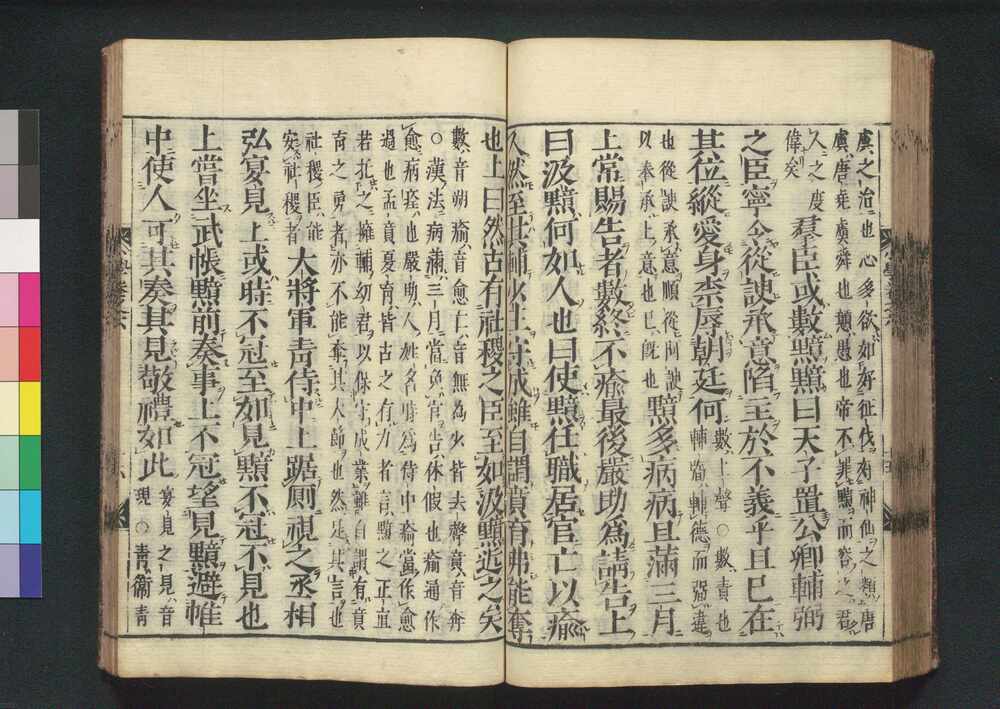 虞之治也心多欲如好征伐好神仙之類唐
虞唐堯虞舜也戇愚也帝不罪黯而容之君
人之度
偉矣
群臣或數黯黯曰天子置公卿輔弼
之臣寧令從諛承意陷主於不義乎且已在
其位縱愛身柰辱朝廷何
數上聲○數責也
輔輔德而弼違
也從諛承意順從阿諛
以奉承上意也已既也
黯多病病且滿三月
上常賜告者數終不瘉最後嚴助爲請告上
曰汲黯何如人也曰使黯任職居官亡以瘉
人然至其輔少主守成雖自謂賁育弗能奪
也上曰然古有社稷之臣至如汲黯近之矣
數音朔瘉音愈亡音無爲少皆去聲賁音奔
○漢法病滿三月當免官告休假也瘉通作
愈病痊也嚴助人姓名時爲侍中瘉當作愈
過也孟賁夏育皆古之有力者言黯之正直
若托之擁輔幼君以保守成業雖自謂有賁
育之勇者亦不能奪其大節也然是其言也
社稷臣能
安社稷者
大將軍青侍中上踞厠視之丞相
弘宴見上或時不冠至如見黯不冠不見也
上嘗坐武帳黯前奏事上不冠望見黯避帷
中使人可其奏其見敬禮如此
宴見之見音
現○青衛青